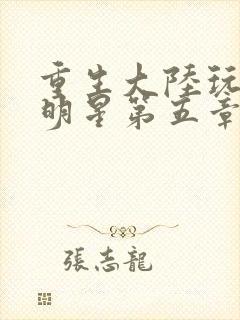 重生大陸玩
明星第五章
張志龍